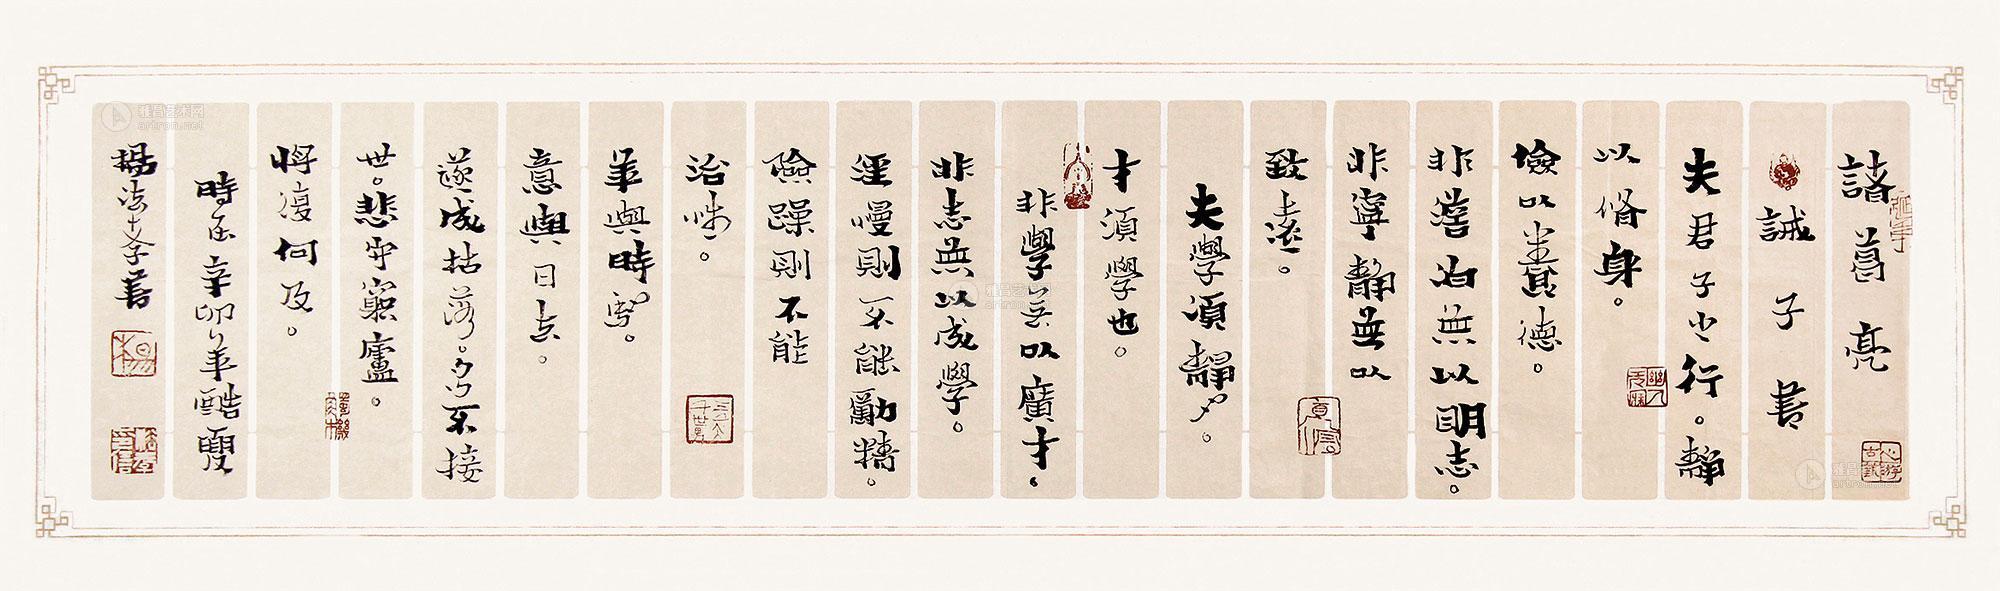 諸葛亮
誡子書
夫君子之行。靜
以脩身。
儉以養德。
非澹泊無以明志。
非寧靜無以
致遠。
夫學須靜也。
才須學也。
非學無以廣才。
非志無以成學。
淫慢則不能勵精。
險躁則不能
治性。
年與時馳。
意與日去。
遂成枯落。多不接
世。悲守窮廬。
將復何及。
時在辛卯年酷夏
楊法孝書
雅昌艺术网
artron.net